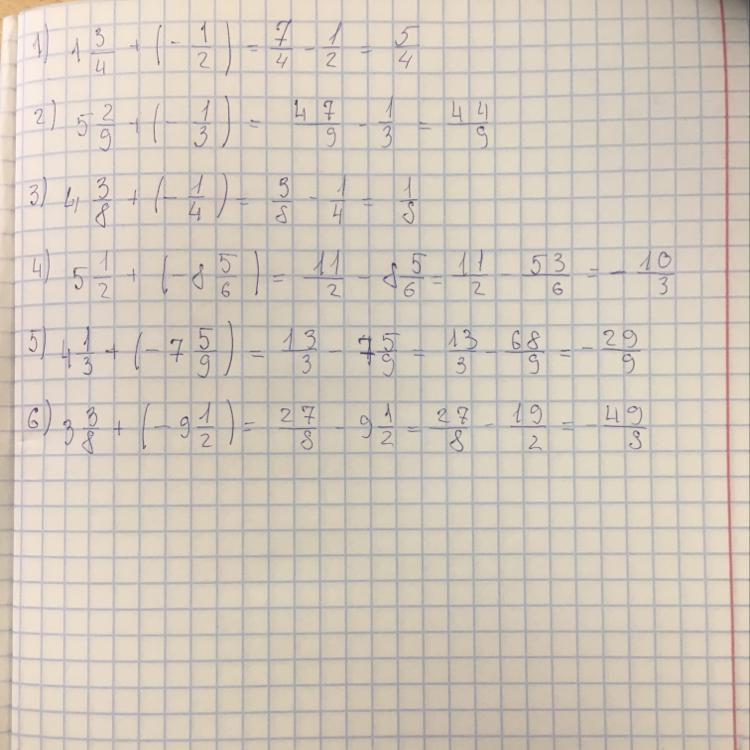 1) 1 3/4 + (- 1/2) = 7/4 - 1/2 = 5/4
2) 5 2/9 + (- 1/3) = 47/9 - 1/3 = 44/9
3) 4 3/8 + (- 1/4) = 3/8 - 1/4 = 1/8
4) 5 1/2 + (- 8 5/6) = 11/2 - 8 5/6 = 11/2 - 53/6 = - 10/3
5) 4 1/3 + (- 7 5/9) = 13/3 - 7 5/9 = 13/3 - 68/9 = - 29/9
6) 3 3/8 + (- 9 1/2) = 27/8 - 9 1/2 = 27/8 - 19/2 = - 49/8